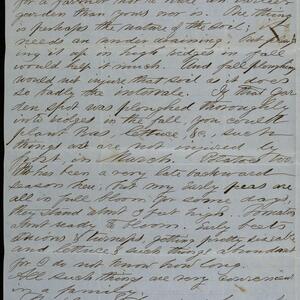 for a farmer not to have an earlier
garden than yours nor is. One thing
is perhaps the nature of the soil;
need an under draining. But
in it up in high ridges in fall
would help it much. And fall ploughing
would not injure that soil as it does
so badly the intervale. If that gar
den spot was ploughed thoroughly
into ridges in the fall, you could
plant Peas, lettuce &c, such
things as are not injured by
frost, in March. Potatoes too
has been a very late backward
season here, but my early peas are
all in full bloom for some days,
they stand about 3 feet high. Tomatoes
about ready to bloom. Early beets
onions & turneps getting pretty sizeable
and lettuce & such things abundant
for I do not know how long.
All such things are very convenient
in a family